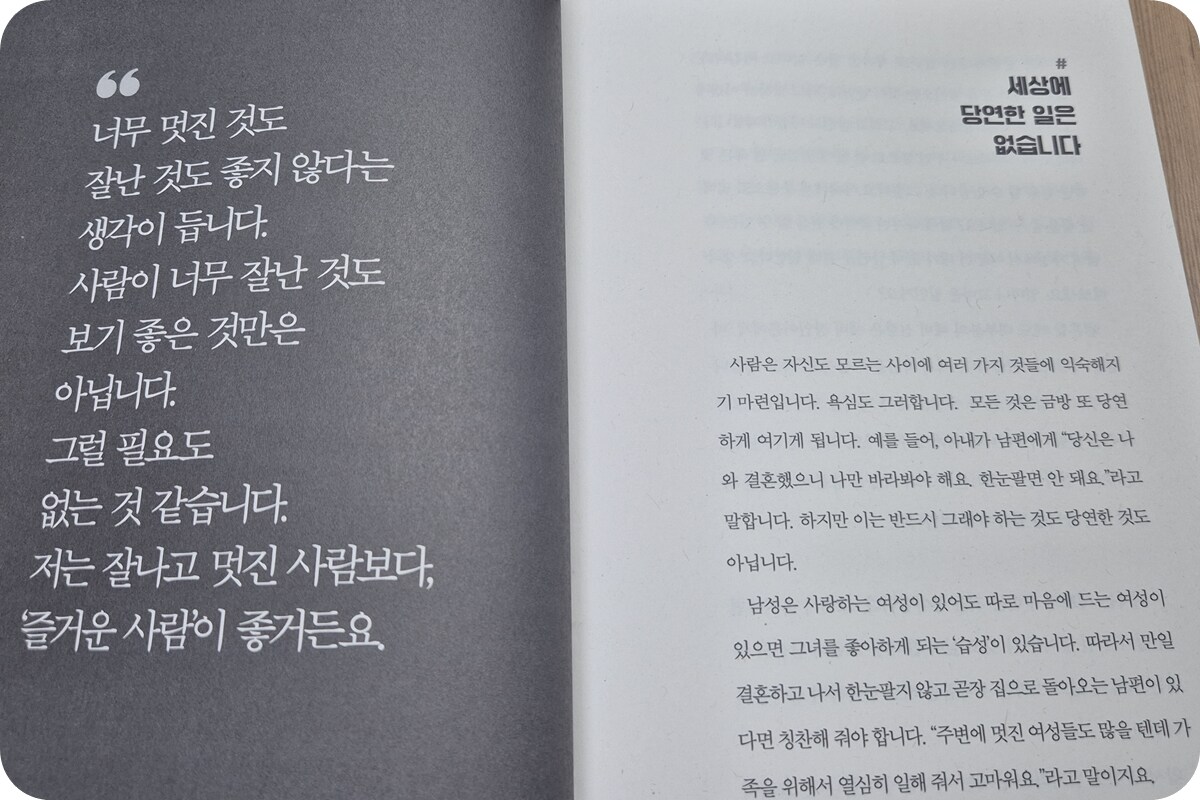 “
너무 멋진 것도
잘난 것도 좋지 않다는
생각이 듭니다.
사람이 너무 잘난 것도
보기 좋은 것만은
아닙니다.
그럴 필요도
없는 것 같습니다.
저는 잘나고 멋진 사람보다,
‘즐거운 사람’이 좋거든요.
#
세상에
당연한 일은
없습니다
사람은 자신도 모르는 사이에 여러 가지 것들에 익숙해지
기 마련입니다. 욕심도 그러합니다. 모든 것은 금방 또 당연
하게 여기게 됩니다. 예를 들어, 아내가 남편에게 “당신은 나
와 결혼했으니 나만 바라봐야 해요. 한눈팔면 안 돼요.”라고
말합니다. 하지만 이는 반드시 그래야 하는 것도 당연한 것도
아닙니다.
남성은 사랑하는 여성이 있어도 따로 마음에 드는 여성이
있으면 그녀를 좋아하게 되는 ‘습성’이 있습니다. 따라서 만일
결혼하고 나서 한눈팔지 않고 곧장 집으로 돌아오는 남편이 있
다면 칭찬해 줘야 합니다. “주변에 멋진 여성들도 많을 텐데 가
족을 위해서 열심히 일해 줘서 고마워요.”라고 말이지요.